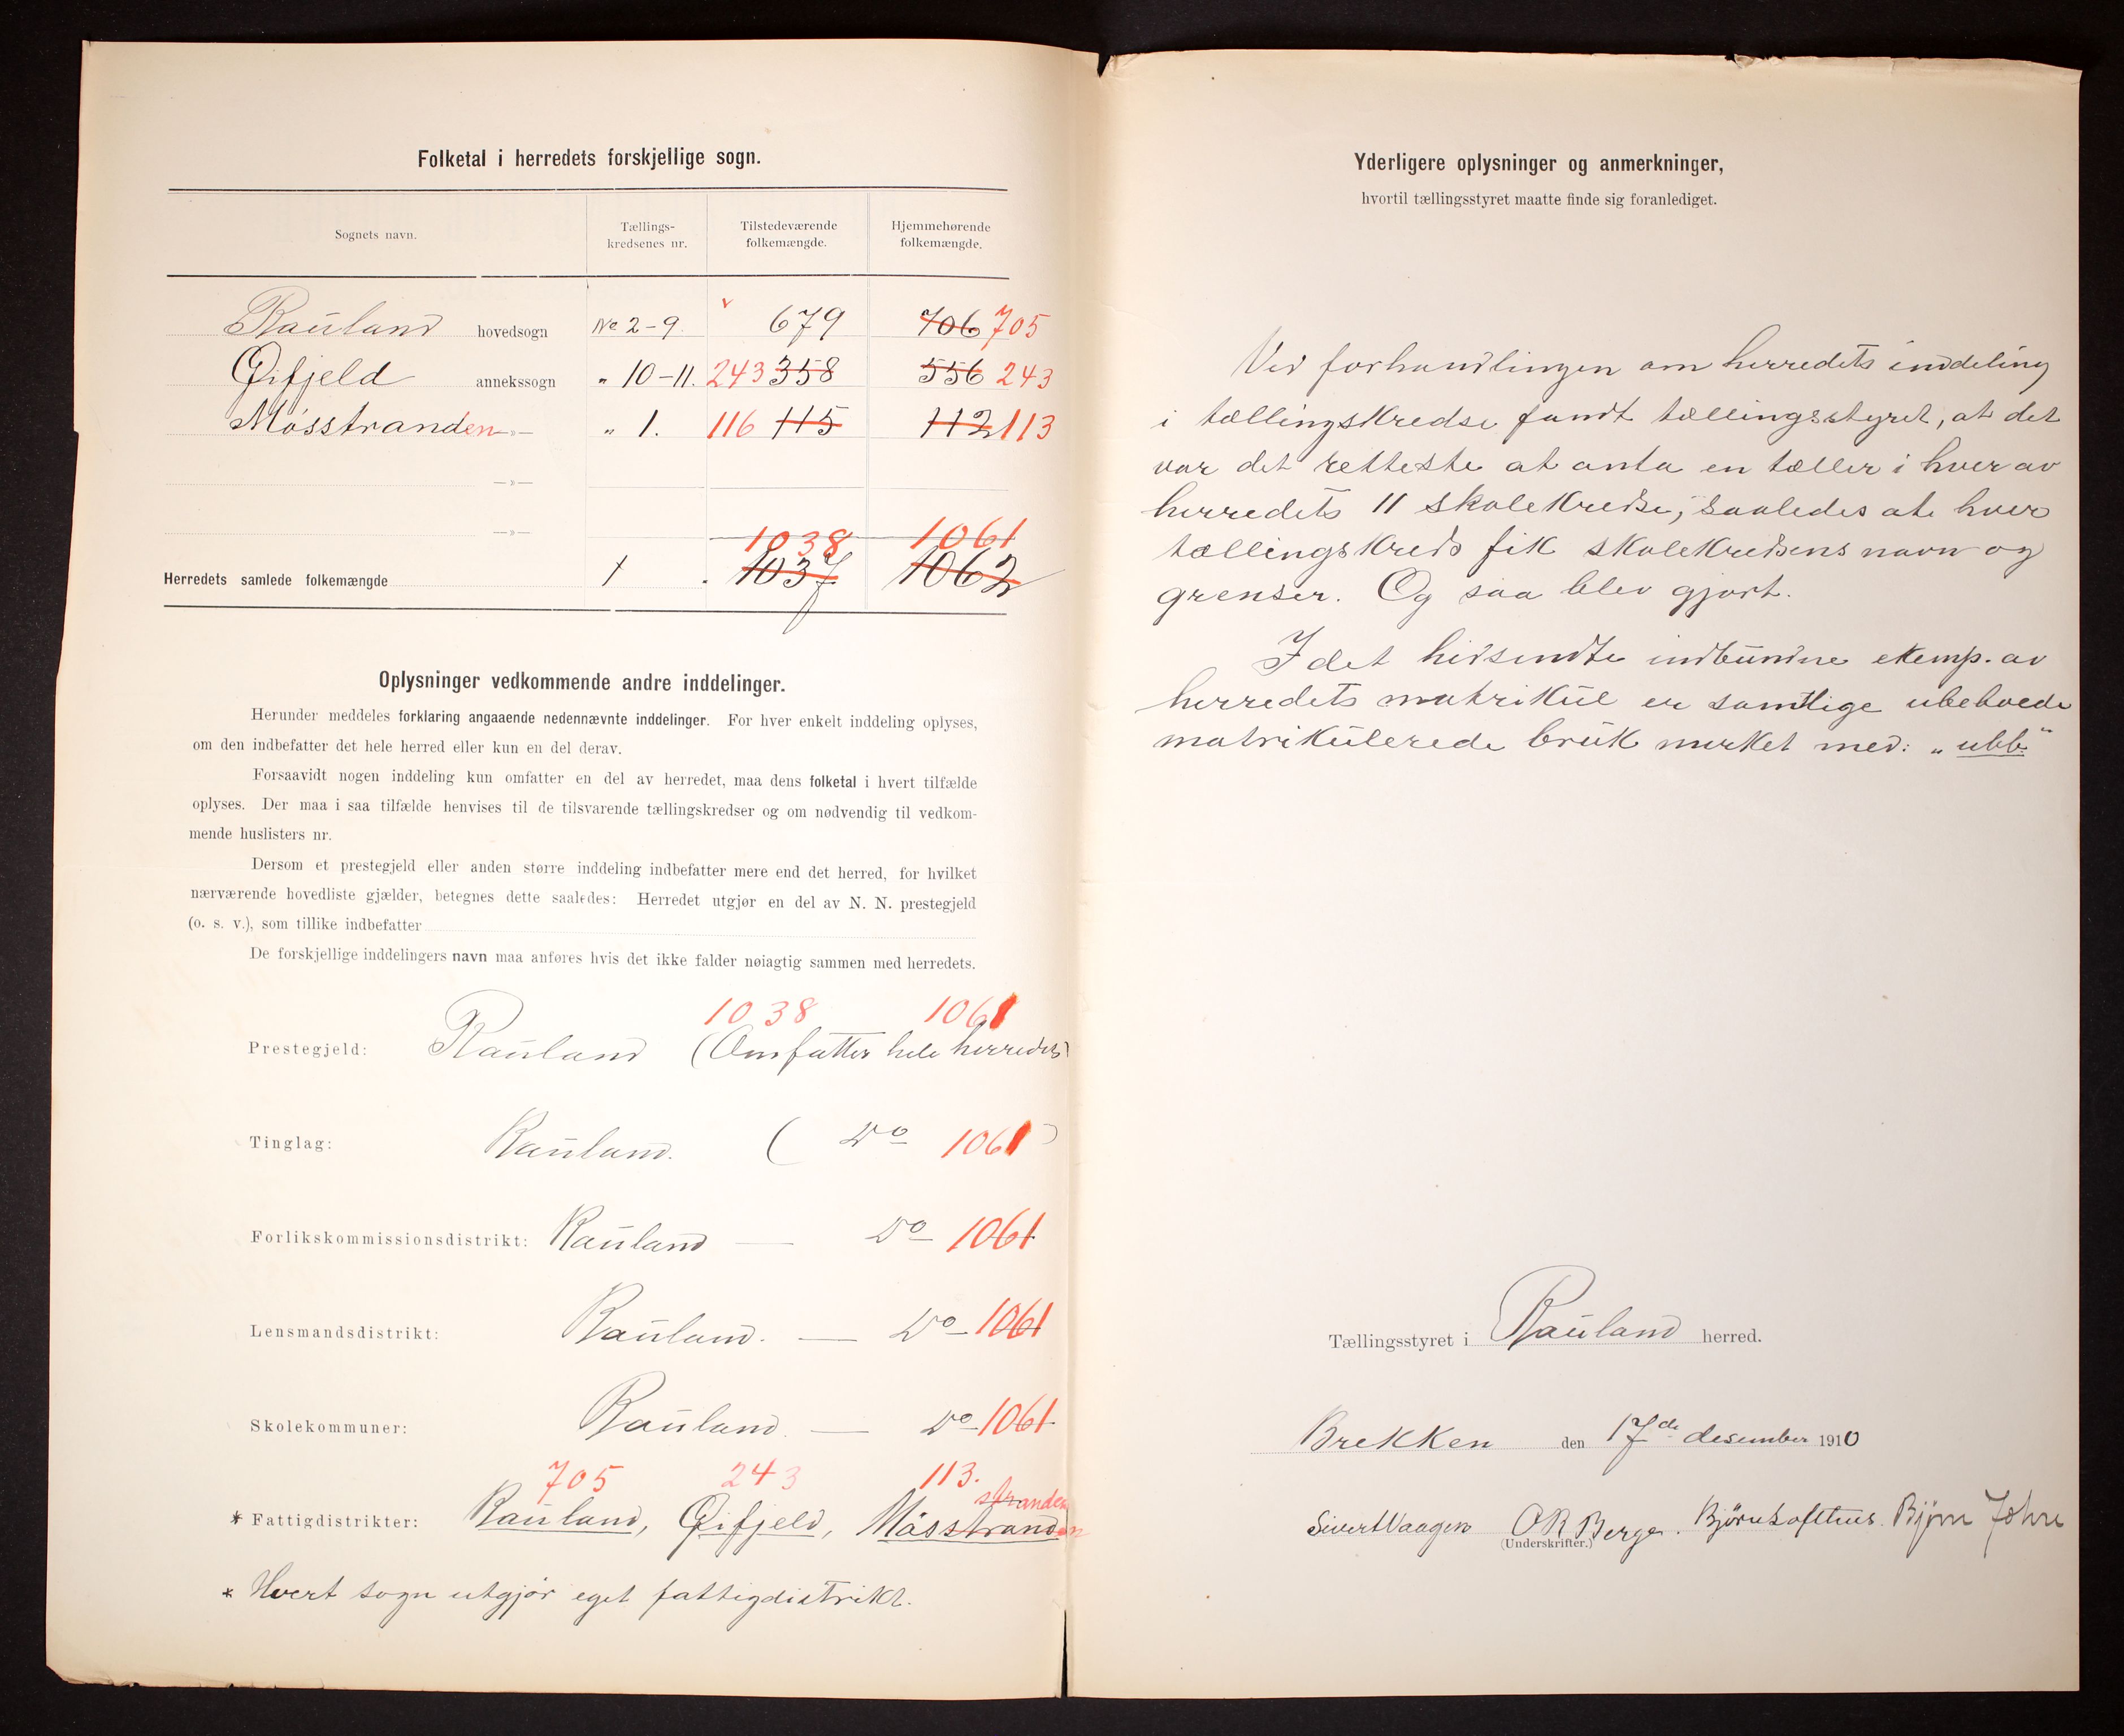 Folketal i herredets forskjellige sogn.
Sognets navn. Tællings-kredsenes nr. Tilstedeværende folkemængde. Hjemmehørende folkemængde.
Rauland hovedsogn No 2-9. v 679 706 705
Øifjeld annekssogn „ 10-11. 243 358 556 243
Mösstranden —»— „ 1. 116 115 112 113
—»—
—»—
1038 1061
Herredets samlede folkemængde 1037 1062
Oplysninger vedkommende andre inddelinger.
Herunder meddeles forklaring angaaende nedennævnte inddelinger. For hver enkelt inddeling oplyses,
om den indbefatter det hele herred eller kun en del derav.
Forsaavidt nogen inddeling kun omfatter en del av herredet, maa dens folketal i hvert tilfælde
oplyses. Der maa i saa tilfælde henvises til de tilsvarende tællingskredser og om nødvendig til vedkom-
mende huslisters nr.
Dersom et prestegjeld eller anden større inddeling indbefatter mere end det herred, for hvilket
nærværende hovedliste gjælder, betegnes dette saaledes: Herredet utgjør en del av N. N. prestegjeld
(o. s. v.), som tillike indbefatter
De forskjellige inddelingers navn maa anføres hvis det ikke falder nøiagtig sammen med herredets.
1038 1061
Prestegjeld: Rauland (Omfatter hele herredet)
Tinglag: Rauland. ( Do 1061 )
Forlikskommissionsdistrikt: Rauland — Do 1061
Lensmandsdistrikt: Rauland. — Do 1061
Skolekommuner: Rauland. — Do 1061
705 243 113.
stranden
* Fattigdistrikter: Rauland, Øifjeld, Mösstranden
* Hvert sogn utgjör eget fattigdistrikt.
Yderligere oplysninger og anmerkninger,
hvortil tællingsstyret maatte finde sig foranlediget.
Ved forhandlingen om herredets inddeling
i tællingskredse fandt tællingsstyret, at det
var det retteste at anta en tæller i hver av
herredets 11 skolekredse, saaledes at hver
tællingskreds fik skolekredsens navn og
grenser. Og saa blev gjort.
I det hidsendte indbundne eksemp. av
herredets matrikul er samtlige ubeboede
matrikulerede bruk merket med: „ubb."
Tællingsstyret i Rauland herred.
Brekken den 17de desember 1910
Sivert Vaagen O R Berge. Björn Lofthus. Björn Johre
(Underskrifter.)